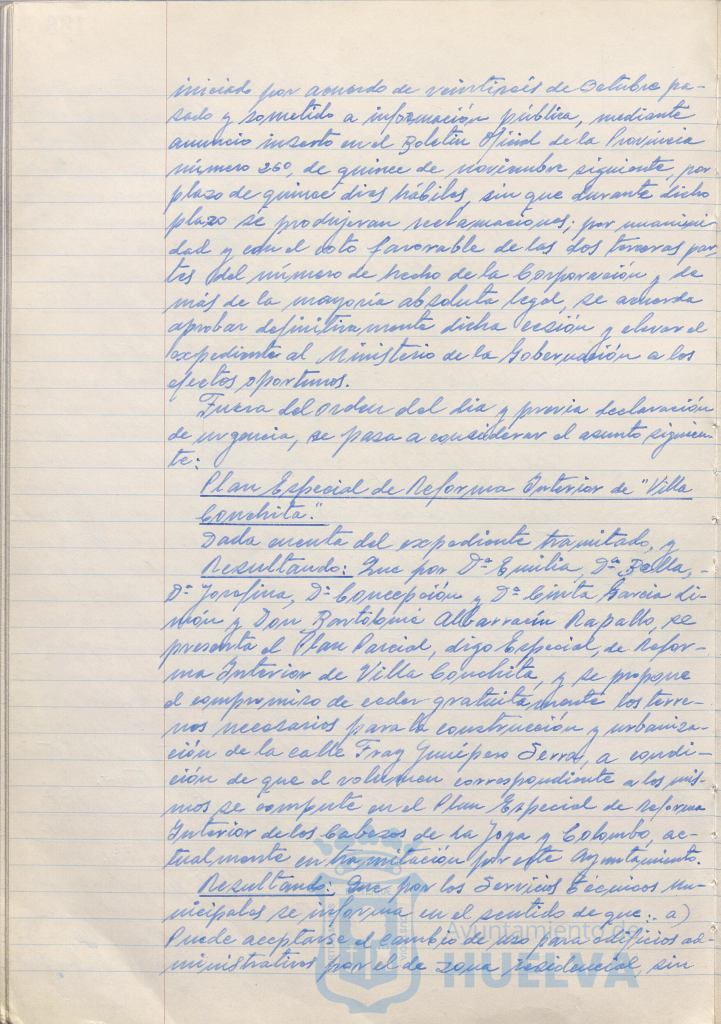 iniciado por acuerdo de veintiseis de Octubre pa-
sado y sometido a información pública, mediante
anuncio inserto en el Boletin Oficial de la Provincia
número 260, de quince de noviembre siguiente, por
plazo de quince dias hábiles, sin que durante dicho
plazo se produjeran reclamaciones; por unanimi-
dad y con el voto favorable de las dos terceras par-
tes del número de hecho de la Corporación y de
más de la mayoría absoluta legal, se acuerda
aprobar definitivamente dicha cesión y elevar el
expediente al Ministerio de la Gobernación a los
efectos oportunos.
Fuera del orden del dia y previa declaración
de urgencia, se pasa a considerar el asunto siguien-
te:
Plan Especial de Reforma Interior de "Villa
Conchita".
Dada cuenta del expediente tramitado, y
Resultando: Que por Dª Emilia, Dª Bella,
Dª Josefina, Dª Concepción y Dª Cinta Garcia Li-
món y Don Bartolomé Albarracín Rapallo, se
presenta el Plan Parcial, digo Especial, de Refor-
ma Interior de Villa Conchita, y se propone
el compromiso de ceder gratuitamente los terre-
nos necesarios para la construcción y urbaniza-
ción de la calle Fray Junípero Serra, a condi-
ción de que el volumen correspondiente a los mis-
mos se compute en el Plan Especial de Reforma
Interior de los Cabezos de La Joya y Colombo, ac-
tualmente en tramitación por este Ayuntamiento.
Resultando: Que por los Servicios Técnicos Mu-
nicipales se informa en el sentido de que: a)
Puede aceptarse el cambio de uso para edificios ad-
ministrativos por el de zona residencial, sin
Ayuntamiento de
HUELVA